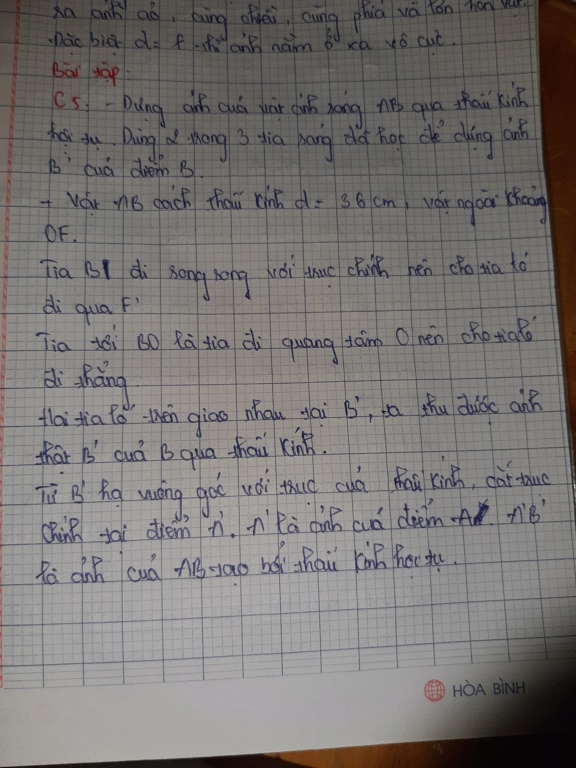 ra ảnh ảo, cùng chiều, cùng phía và lớn hơn vật.
Đặc biệt d = f thì ảnh nằm ở xa vô cực.
Bài tập:
C5: - Dựng ảnh của vật sáng AB qua thấu kính
hội tụ. Dùng 2 trong 3 tia sáng đã học để dựng ảnh
B' của điểm B.
+ Vật AB cách thấu kính d = 36 cm, vật ngoài khoảng
OF.
Tia BI đi song song với trục chính nên cho tia ló
đi qua F'
Tia tới BO là tia đi quang tâm O nên cho tia ló
đi thẳng
Hai tia ló trên giao nhau tại B', ta thu được ảnh
thật B' của B qua thấu kính.
Từ B' hạ vuông góc với trục của thấu kính, cắt trục
chính tại điểm A'. A' là ảnh của điểm A. A'B'
là ảnh của AB tạo bởi thấu kính hội tụ.
HÒA BÌNH